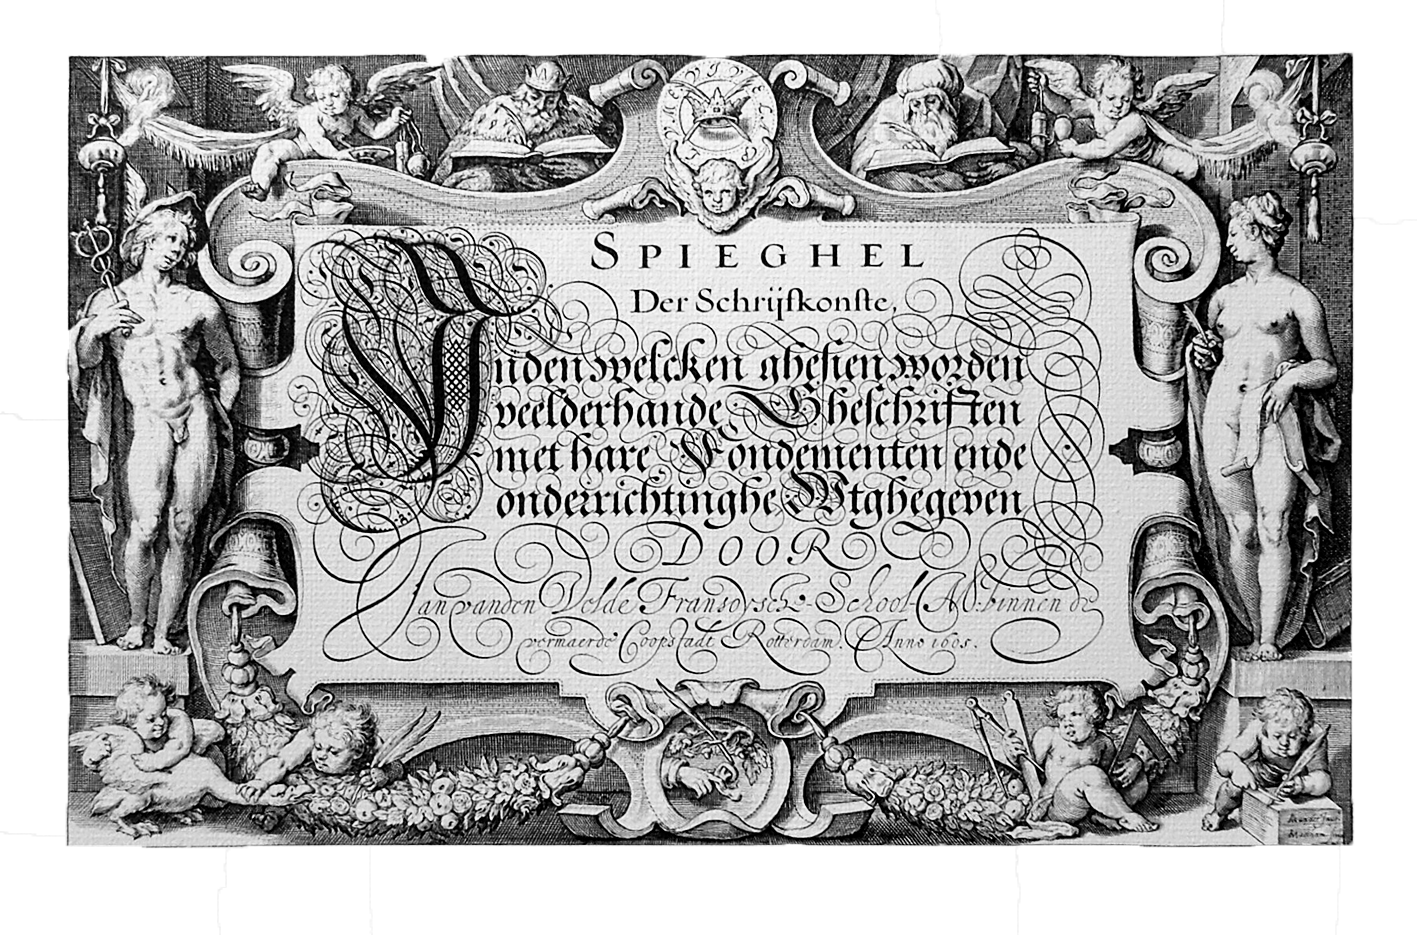 SPIEGHEL
Der Schrijfkonſte,
Inden welcken gheſien worden
veelderhande Gheſchriften
met hare Fondementen ende
onderrichtinghe Wtghegeven
DOOR
Jan vanden Velde Fransoysche-School-Mr. binnen de
vermaerde Coopstadt Rotterdam. Anno 1605.